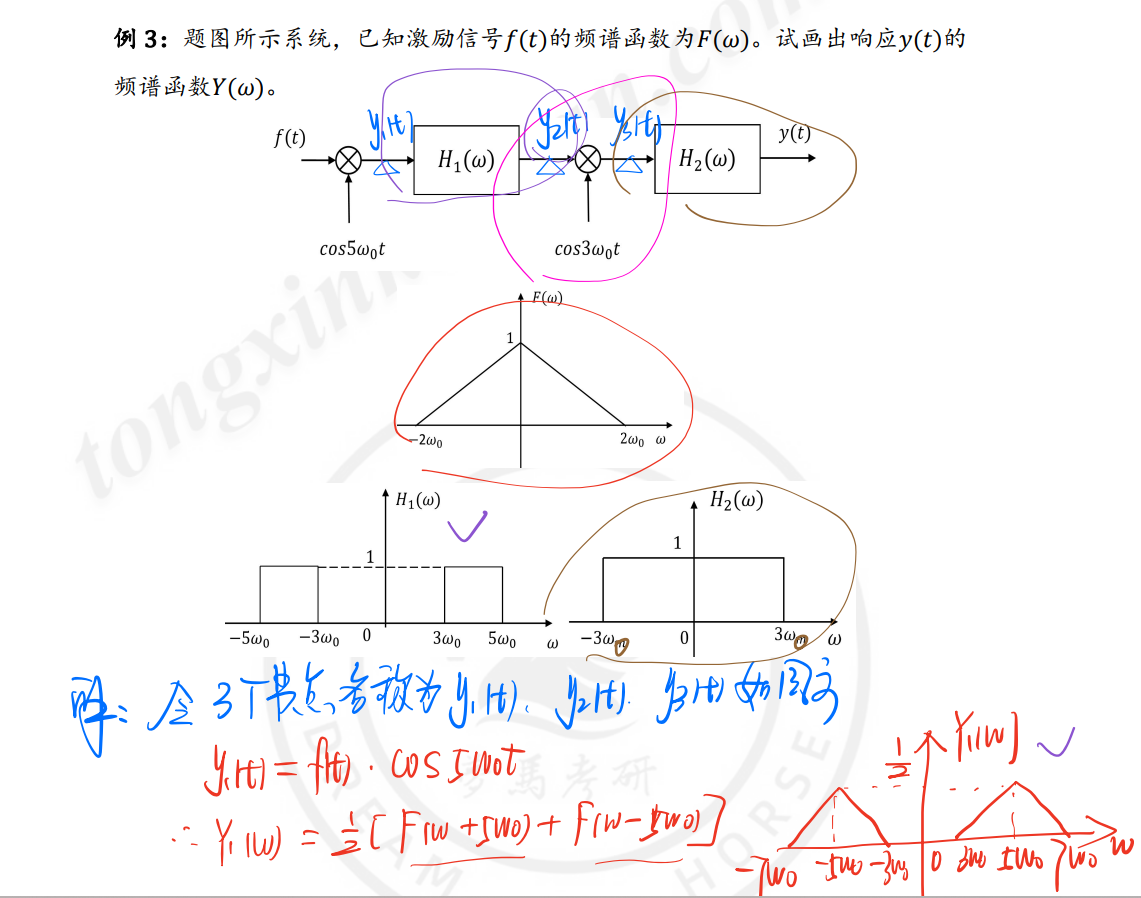 例 3：题图所示系统，已知激励信号f(t)的频谱函数为F(ω)。试画出响应y(t)的
频谱函数Y(ω)。
y₁(t) y₂(t) y₃(t)
f(t) H₁(ω) H₂(ω) y(t)
cos5ω₀t cos3ω₀t
F(ω)
1
−2ω₀ 2ω₀ ω
H₁(ω) H₂(ω)
1 1
−5ω₀ −3ω₀ 0 3ω₀ 5ω₀ ω −3ω₀ 0 3ω₀ ω
解：令3个节点名称为y₁(t)、y₂(t)、y₃(t)如图示
y₁(t) = f(t) · cos5ω₀t
∴ Y₁(ω) = ½[F(ω+5ω₀) + F(ω−5ω₀)]
½ Y₁(ω)
−7ω₀ −5ω₀ −3ω₀ 0 3ω₀ 5ω₀ 7ω₀ ω
考研
HORSE